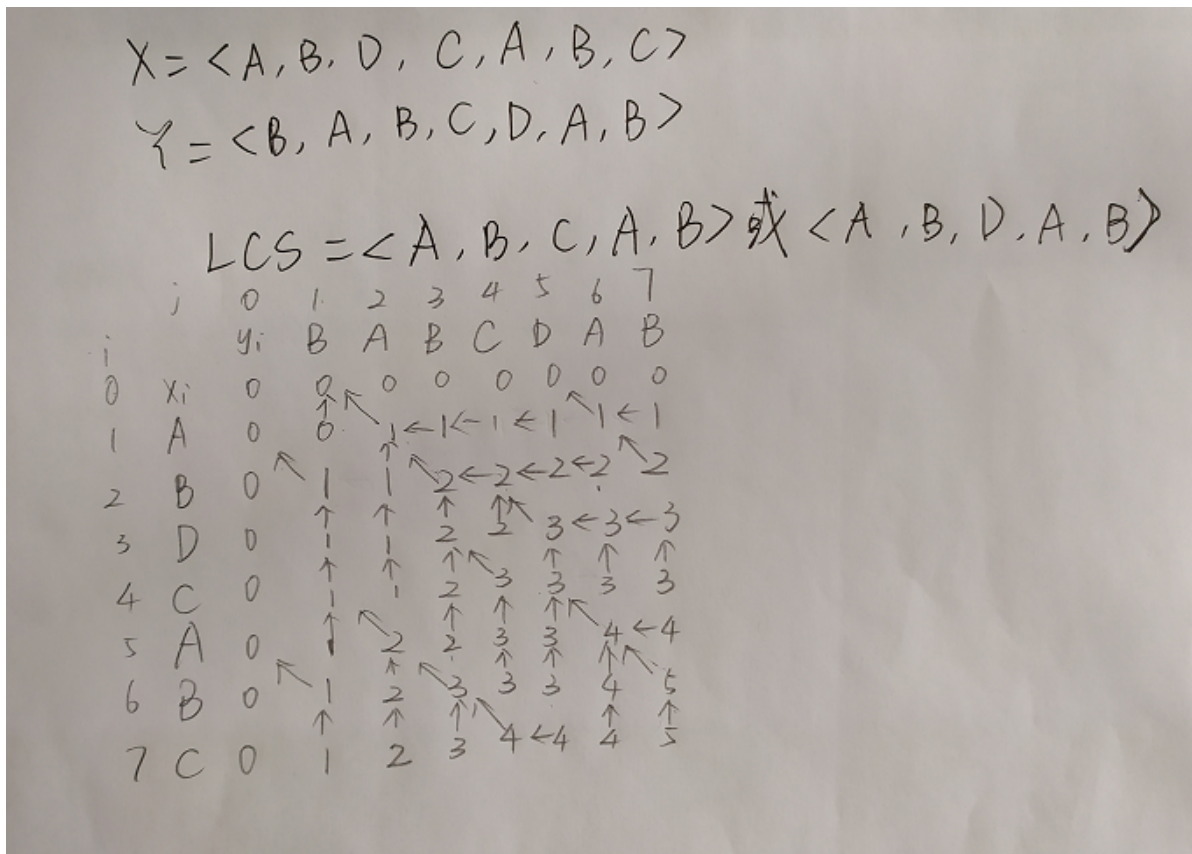 X=<A,B,D,C,A,B,C>
Y=<B,A,B,C,D,A,B>
LCS=<A,B,C,A,B>或<A,B,D,A,B>
j 0 1 2 3 4 5 6 7
i yi B A B C D A B
0 xi 0 0 0 0 0 0 0 0
1 A 0 ↑0 ↖1 ←1 ←1 ←1 ↖1 ←1
2 B 0 ↖1 1 ↖2 ←2 ←2 ←2 ↖2
3 D 0 ↑1 ↑1 ↑2 ↑2 ↖3 ←3 ←3
4 C 0 ↑1 ↑1 ↑2 ↖3 ↑3 ↑3 ↑3
5 A 0 ↑1 ↖2 ↑2 ↑3 ↑3 ↖4 ←4
6 B 0 ↖1 ↑2 ↖3 ↑3 ↑3 ↑4 ↖5
7 C 0 ↑1 ↑2 ↑3 ↖4 ←4 ↑4 ↑5